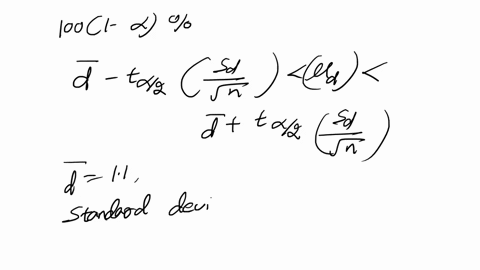 100(1- α) %
d̄ - tα/2 (Sd/√n) < (μd) <
d̄ + tα/2 (Sd/√n)
d̄ = 1.1,
Standard devi